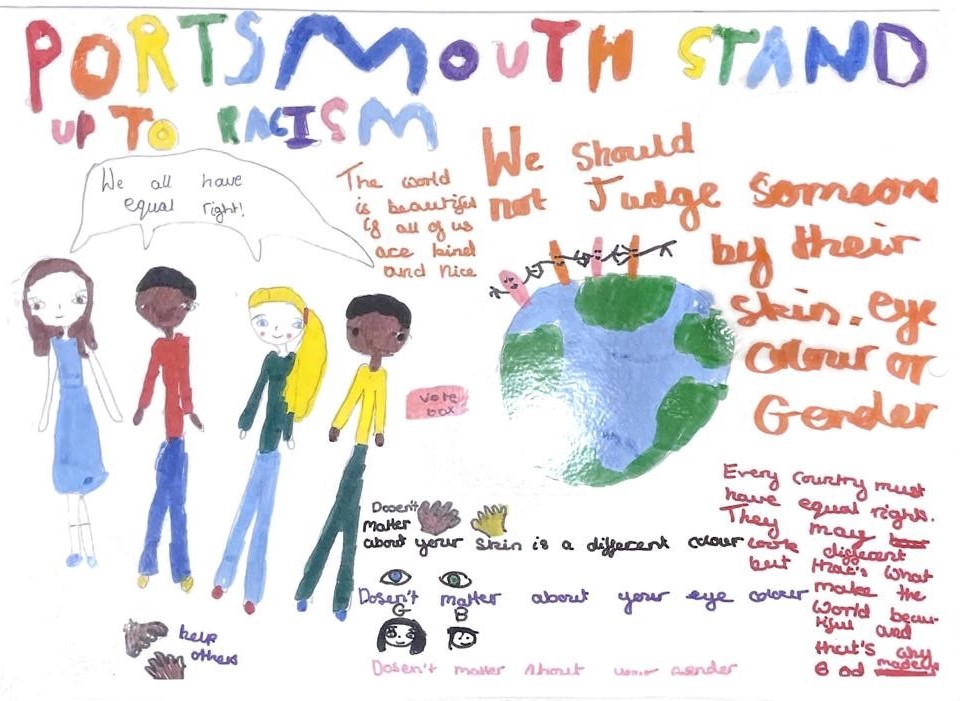 PORTSMOUTH STAND
UP TO RACISM
We all have
equal right!
The world
is beautiful
if all of us
are kind
and nice
We should
not Judge someone
by their
skin. eye
colour or
Gender
vote
box
Every country must
have equal rights.
They may
look different
but that's what
make the
world beau-
tiful and
that's why
God made us
Dosen't
matter
about your skin is a different colour
Dosen't matter about your eye colour
G B
Dosen't matter about your gender
help
others